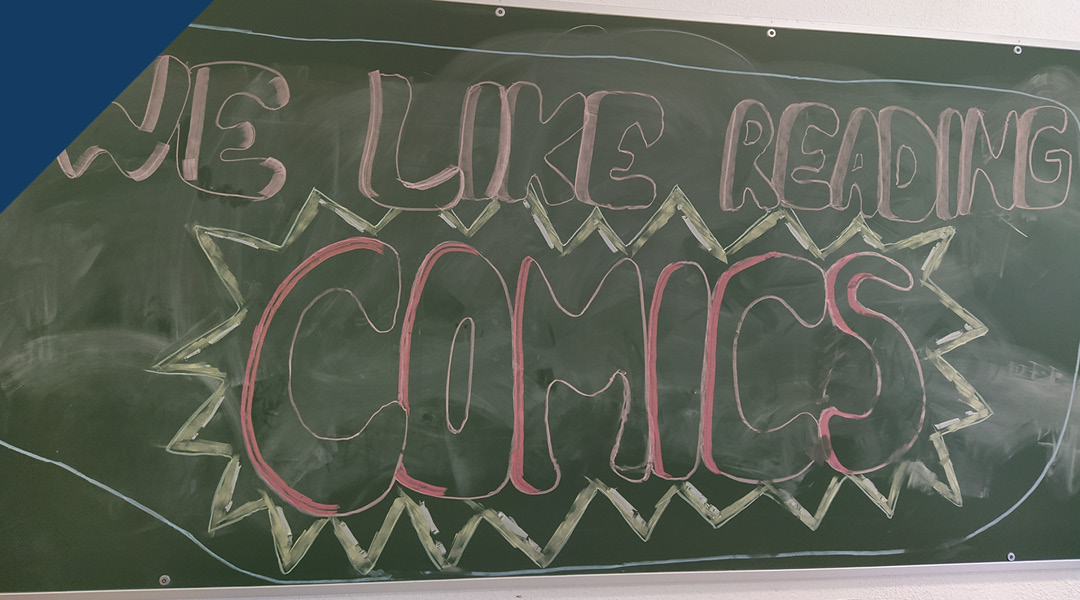 WE LIKE READING
COMICS